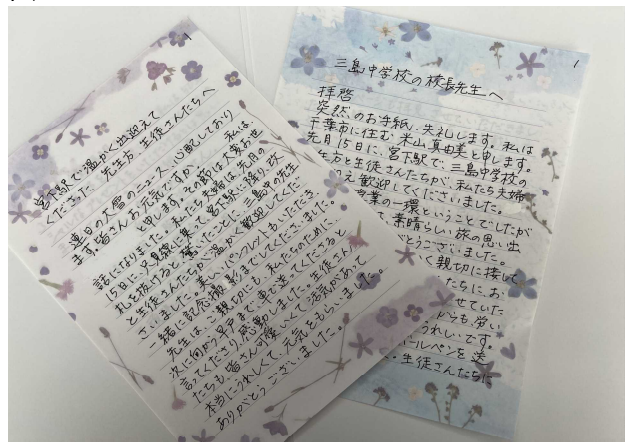 1
宮下駅で温かく出迎えて
くださった 先生方、生徒さんたちへ
連日の大雪のニュース、心配しており
ます。皆さんお元気ですか。私は
と申します。その節は大変お世
話になりました。私たち夫婦は、先月の
15日に、只見線に乗って宮下駅に降り、改
札を抜けると、驚いたことに三島中の先生
と生徒さんたちが温かく歓迎してくだ
さいました。美しいパンフレットもいただき、
一緒に記念撮影までしてくださいました。
先生は、ご親切にも、私たちのために、
次に向かう号まで車で送ってくださると
言ってくださり、感動しました。生徒さん
たちも皆さん可愛いくて活気があって
本当にうれしくて、元気をもらいました。
ありがとうございました。
1
三島中学校の校長先生へ
拝啓
突然のお手紙、失礼します。私は
千葉市に住む、米山真由美と申します。
先月15日に、宮下駅で、三島中学校の
生方と生徒さんたちが、私たち夫婦
え歓迎してくださいました。
業の一環ということでしたが
、素晴らしい旅の思い出
とうございました。
く親切に接して
たちに、お
せていた
からも、労い
うれしいです。
ールペンを送
。生徒さんたちに